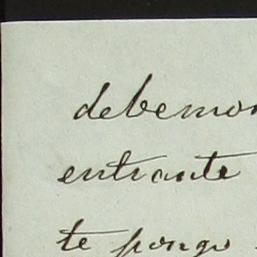 debemos
entrante
te pongo